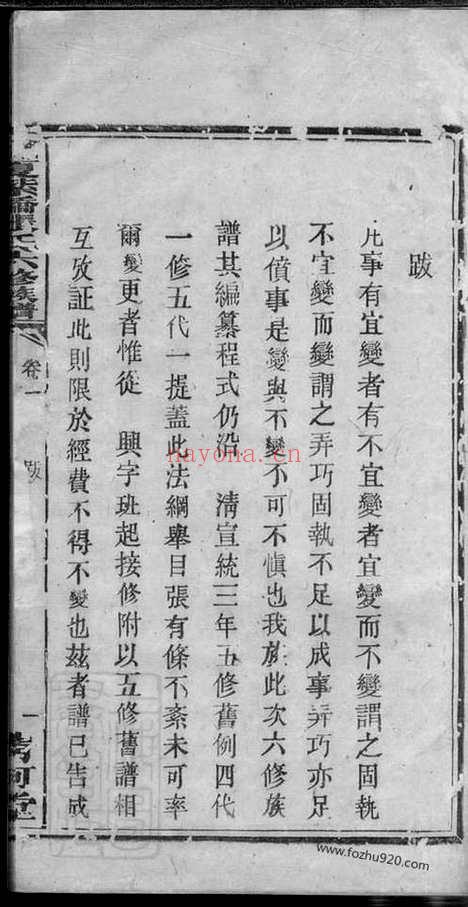 跋
凡事有宜變者有不宜變者宜變而不變謂之固執
不宜變而變謂之弄巧固執不足以成事弄巧亦足
以僨事是變與不變不可不慎也我族此次六修族
譜其編纂程式仍沿 清宣統三年五修舊例四代
一修五代一提蓋此法綱舉目張有條不紊未可率
爾變更者惟從 興字班起接修附以五修舊譜相
互攷証此則限於經費不得不變也玆者譜已告成
六修族譜
卷一
跋
一
堂
nayona.cn
www.fozhu920.com